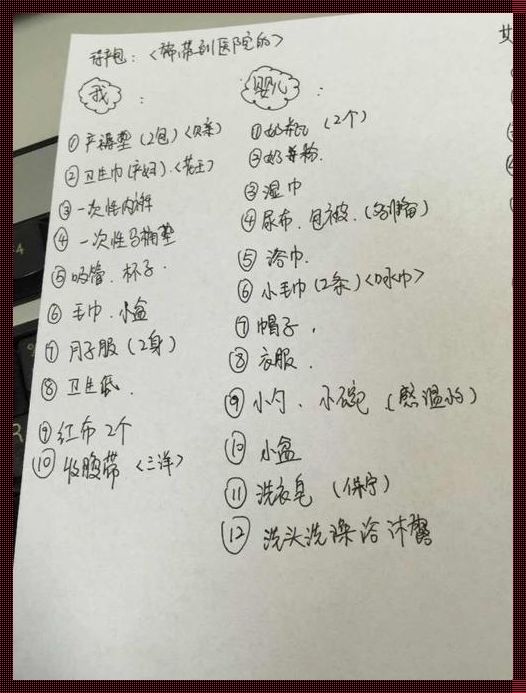 待产包：<需带到医院的>
我：
① 产褥垫（2包）<贝亲>
② 卫生巾（产妇）.<花王>
③ 一次性内裤
④ 一次性马桶垫
⑤ 吸管．杯子．
⑥ 毛巾．小盆
⑦ 月子服（2身）
⑧ 卫生纸．
⑨ 红布 2个
⑩ 收腹带 <三洋>
婴儿：
① 奶瓶（2个）
② 奶粉．
③ 湿巾
④ 尿布．包被．
⑤ 浴巾．
⑥ 小毛巾（2条）<口水巾>
⑦ 帽子．
⑧ 衣服．
⑨ 小勺、小碗（感温的）
⑩ 小盆
⑪ 洗衣皂（保宁）
⑫ 洗头洗澡浴沐露